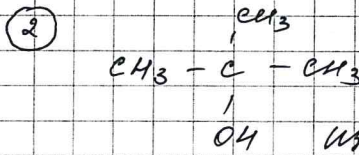 2
CH3
CH3 - C - CH3
OH